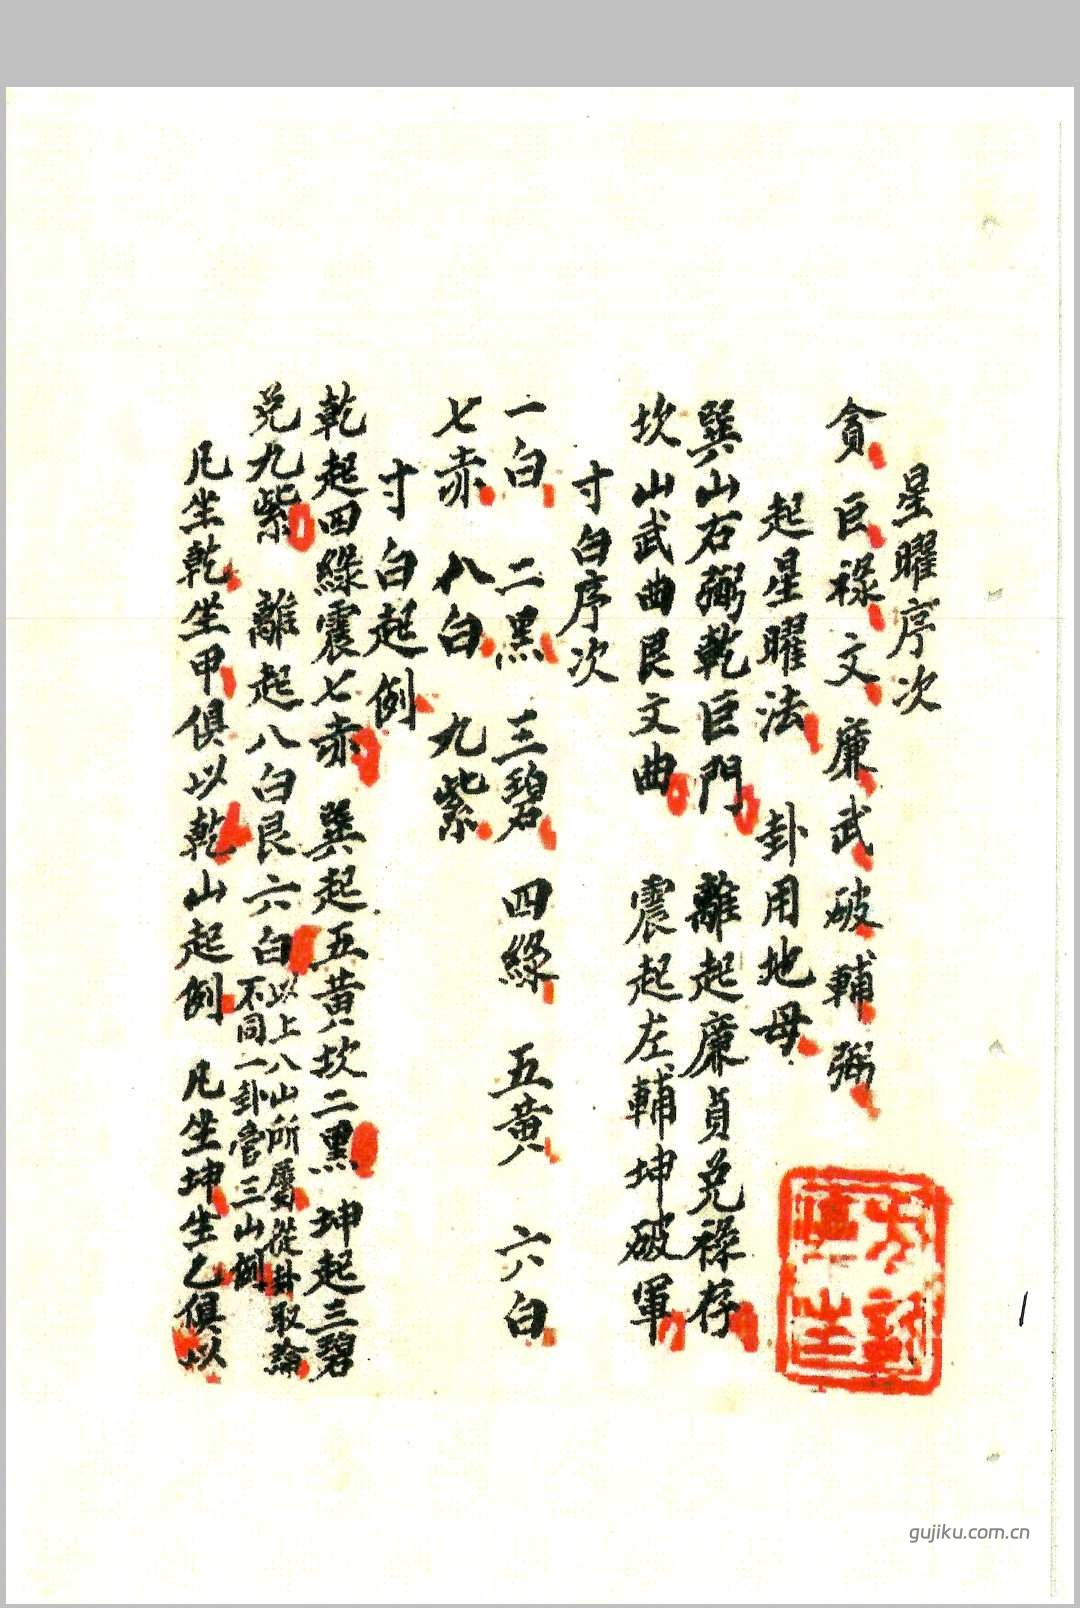 星曜序次
貪巨祿文廉武破輔弼
起星曜法 卦用地母
巽山右弼乾巨門 離起廉貞兑祿存
坎山武曲艮文曲 震起左輔坤破軍
寸白序次
一白 二黑 三碧 四綠 五黃 六白
七赤 八白 九紫
寸白起例
乾起四綠震七赤 巽起五黃坎二黑 坤起三碧
兑九紫 離起八白艮六白以上八山所屬從卦取論
不同一卦管三山例
凡坐乾坐甲俱以乾山起例 凡坐坤坐乙俱以
1
gujiku.com.cn